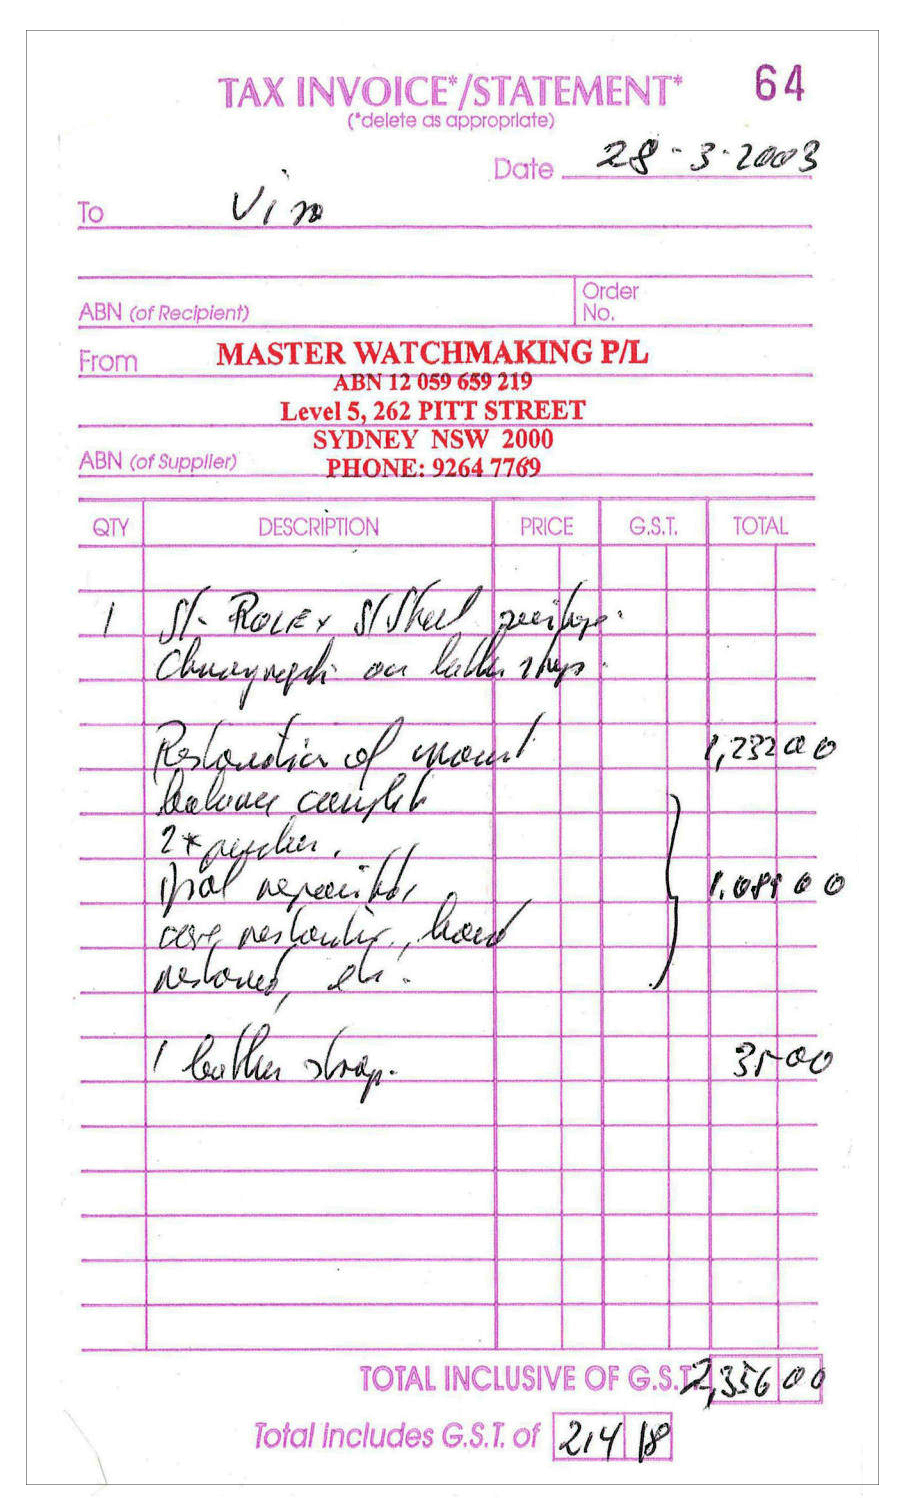 TAX INVOICE*/STATEMENT* 64
(*delete as appropriate)
Date 28-3-2003
To Vin
ABN (of Recipient)
Order No.
From MASTER WATCHMAKING P/L
ABN 12 059 659 219
Level 5, 262 PITT STREET
SYDNEY NSW 2000
ABN (of Supplier) PHONE: 9264 7769
QTY DESCRIPTION PRICE G.S.T. TOTAL
1 ROLEX S/Steel
on leather
Restoration of 1,232 00
balance
2*
Dial 1,089 00
case restoration, hand
restored, etc.
1 leather strap. 35-00
TOTAL INCLUSIVE OF G.S.T. 2,356 00
Total includes G.S.T. of 214 18